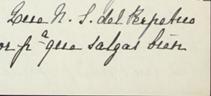 Quiera N. S. del Perpetuo
or pª que salgas bien